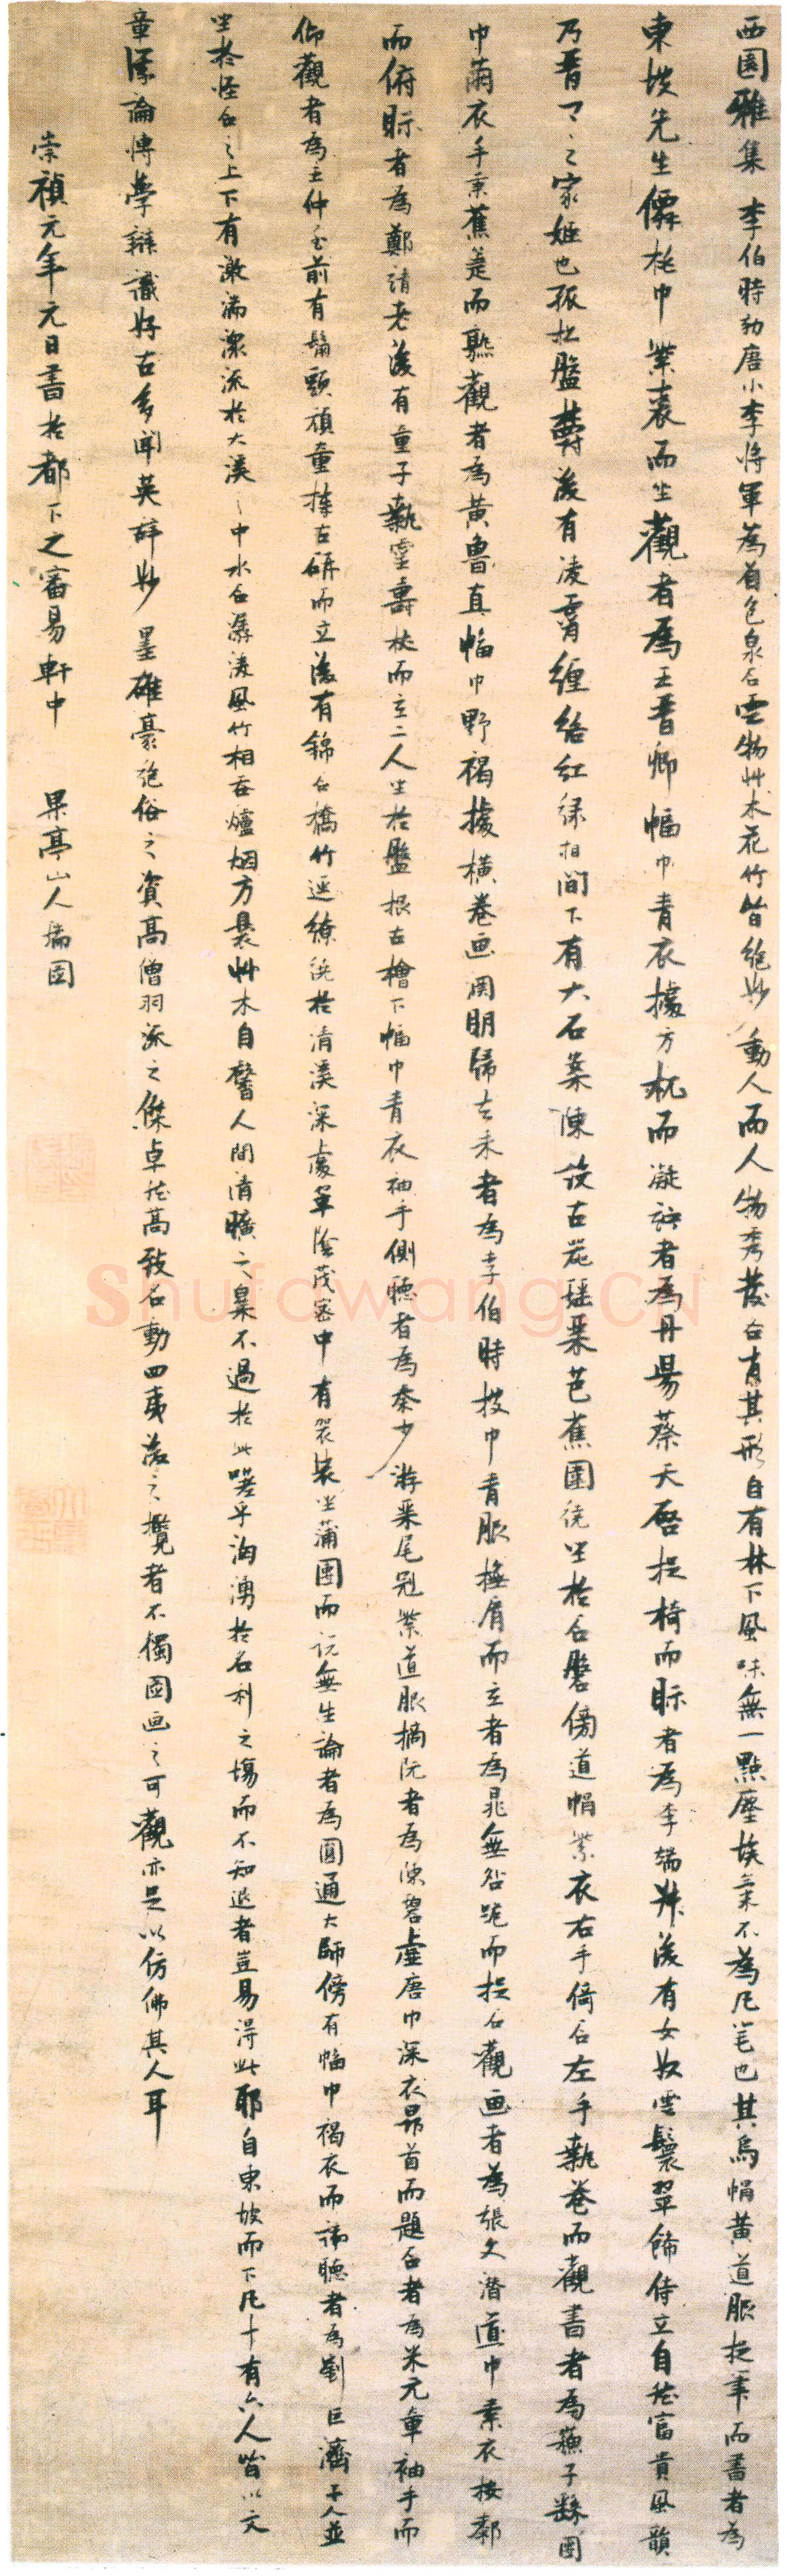 西園雅集 李伯時効唐小李將軍為着色泉石雲物艸木花竹皆絶妙動人而人物秀發各肖其形自有林下風味無一點塵埃氣不為凡筆也其烏帽黃道服捉筆而書者為
東坡先生僊桃巾紫裘而坐觀者為王晉卿幅巾青衣據方机而凝竚者為丹陽蔡天啓捉椅而眎者為李端叔後有女奴雲鬟翠飾侍立自然富貴風韻
乃晉卿之家姬也孤松盤鬱後有凌霄纏絡紅綠相間下有大石案陳設古器瑤琴芭蕉圍繞坐於石磐傍道帽紫衣右手倚石左手執卷而觀書者為蘇子繇團
巾繭衣手秉蕉箑而熟觀者為黃魯直幅巾野褐據橫卷画淵明歸去来者為李伯時披巾青服撫肩而立者為晁無咎跪而捉石觀画者為張文潛道巾素衣按郄
而俯眎者為鄭靖老後有童子執靈壽杖而立二人坐於盤根古檜下幅巾青衣袖手側聽者為秦少游琹尾冠紫道服摘阮者為陳碧虛唐巾深衣昂首而題石者為米元章袖手而
仰觀者為王仲至前有鬅頭頑童捧古硏而立後有錦石橋竹逕繚繞於清溪深處翠陰茂密中有袈裟坐蒲團而說無生論者為圓通大師傍有幅巾褐衣而諦聽者為劉巨濟二人並
坐於怪石之上下有激湍潨流於大溪之中水石潺湲風竹相吞爐烟方裊艸木自馨人間清曠之樂不過於此嗟乎洶湧於名利之場而不知退者豈易得此耶自東坡而下凡十有六人皆以文
章議論博學辯識好古多聞英辭妙墨雄豪絶俗之資高僧羽流之傑卓然高致名動四夷後之攬者不獨圖画之可觀亦足以仿佛其人耳
崇禎元年元日書於都下之審易軒中 果亭山人瑞圖
Shufawang.CN